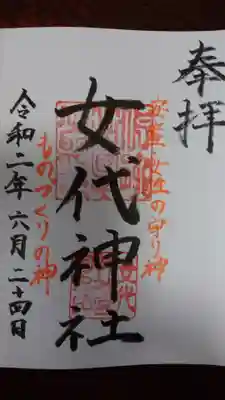 奉拝
安産・女性の守り神
女代神社
ものつくりの神
令和二年六月二十四日